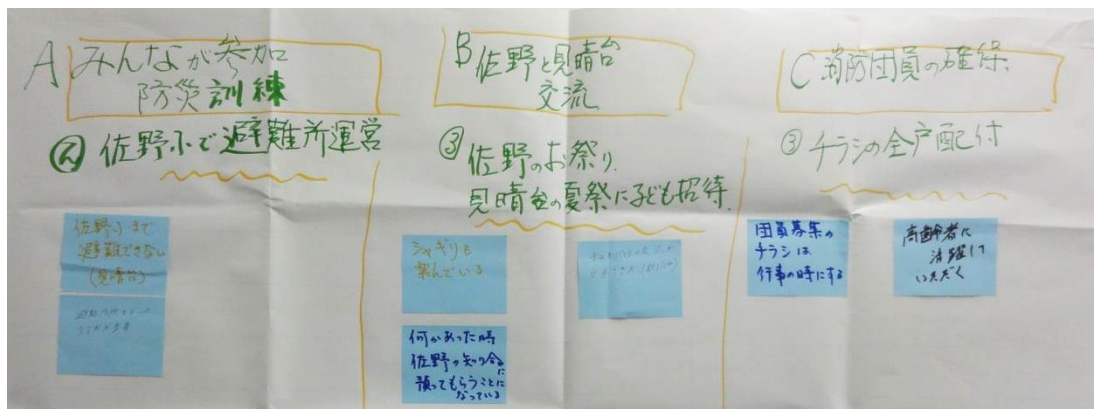 A みんなが参加
防災訓練
② 佐野小で避難所運営
佐野小まで
避難できない
(見晴台)
B 佐野と見晴台
交流
③ 佐野のお祭り
見晴台の夏祭に子ども招待
シャギリも
来んでいる
何かあった時
佐野の知り合いに
預ってもらうことに
なっている
C 消防団員の確保
③ チラシの全戸配付
団員募集の
チラシは
行事の時にする
高齢者に
活躍して
いただく